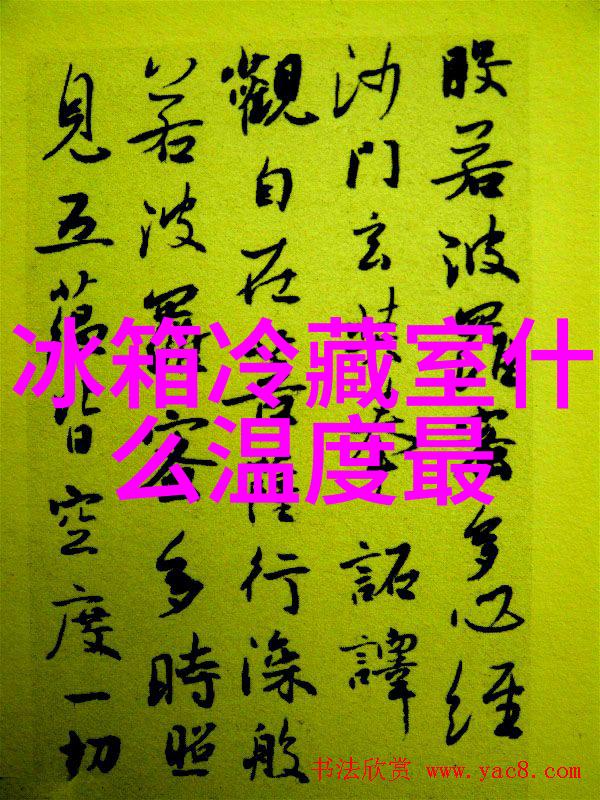 般若波羅蜜多心經
沙門玄奘奉 詔譯
觀自在菩薩行深般
若波羅蜜多時照
見五蘊皆空度一切
冰箱冷藏室什
么温度最
书法欣赏 www.yac8.com